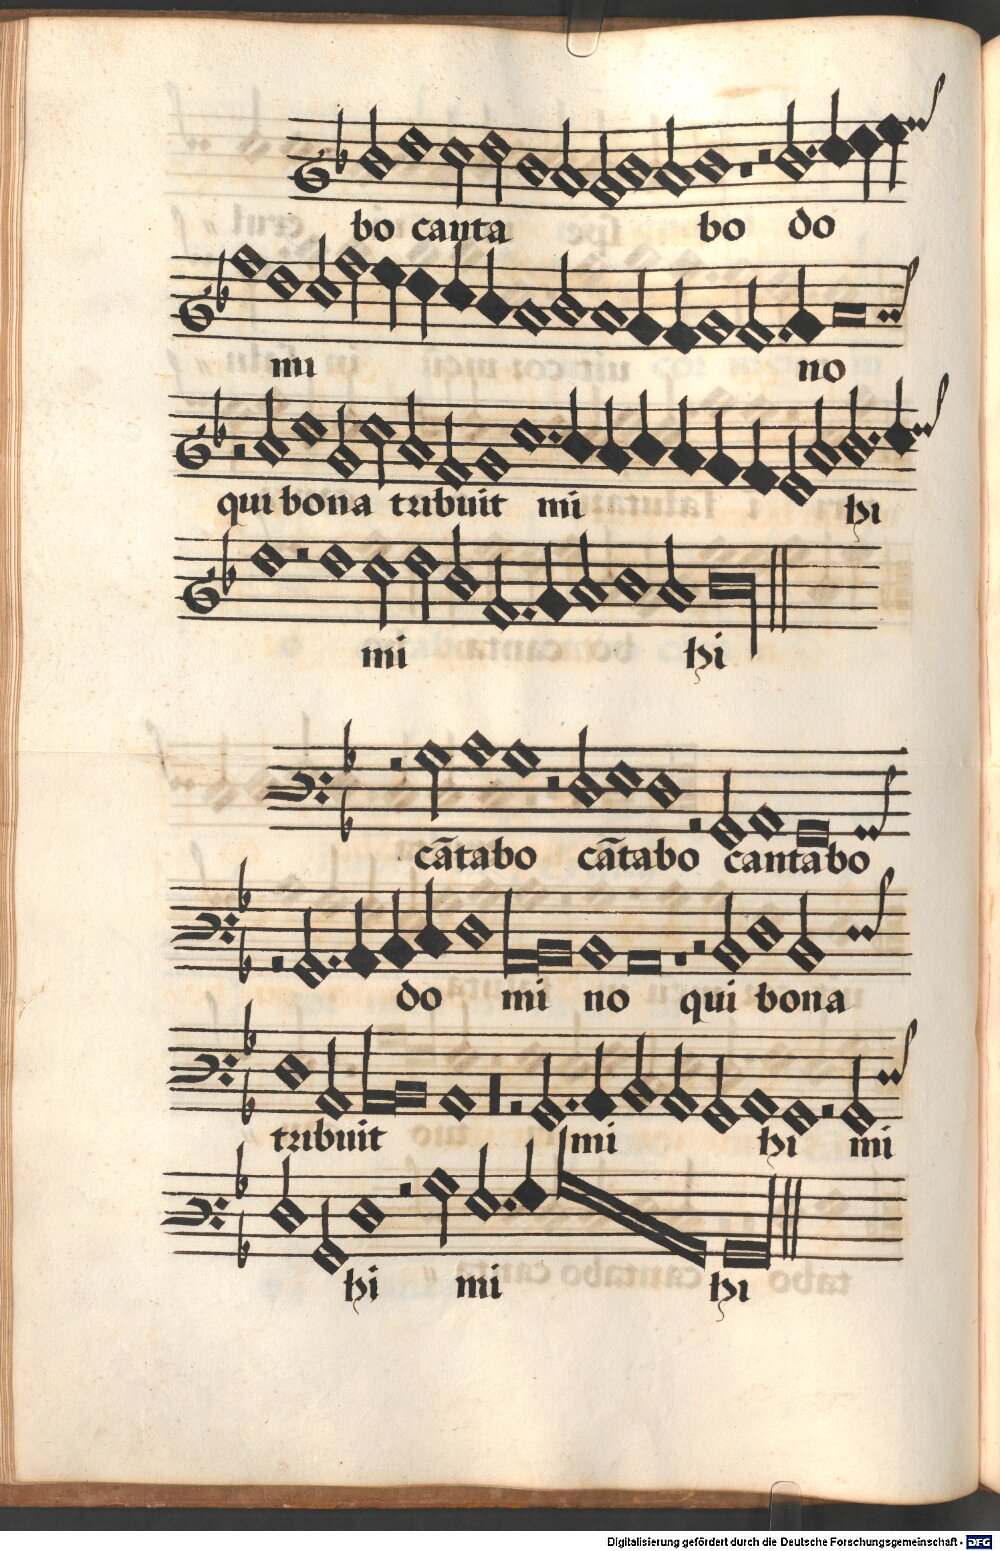 bo canta bo do
mi no
qui bona tribuit mi hi
mi hi
cātabo cātabo cantabo
do mi no qui bona
tribuit mi hi mi
hi mi hi
Digitalisierung gefördert durch die Deutsche Forschungsgemeinschaft - DFG